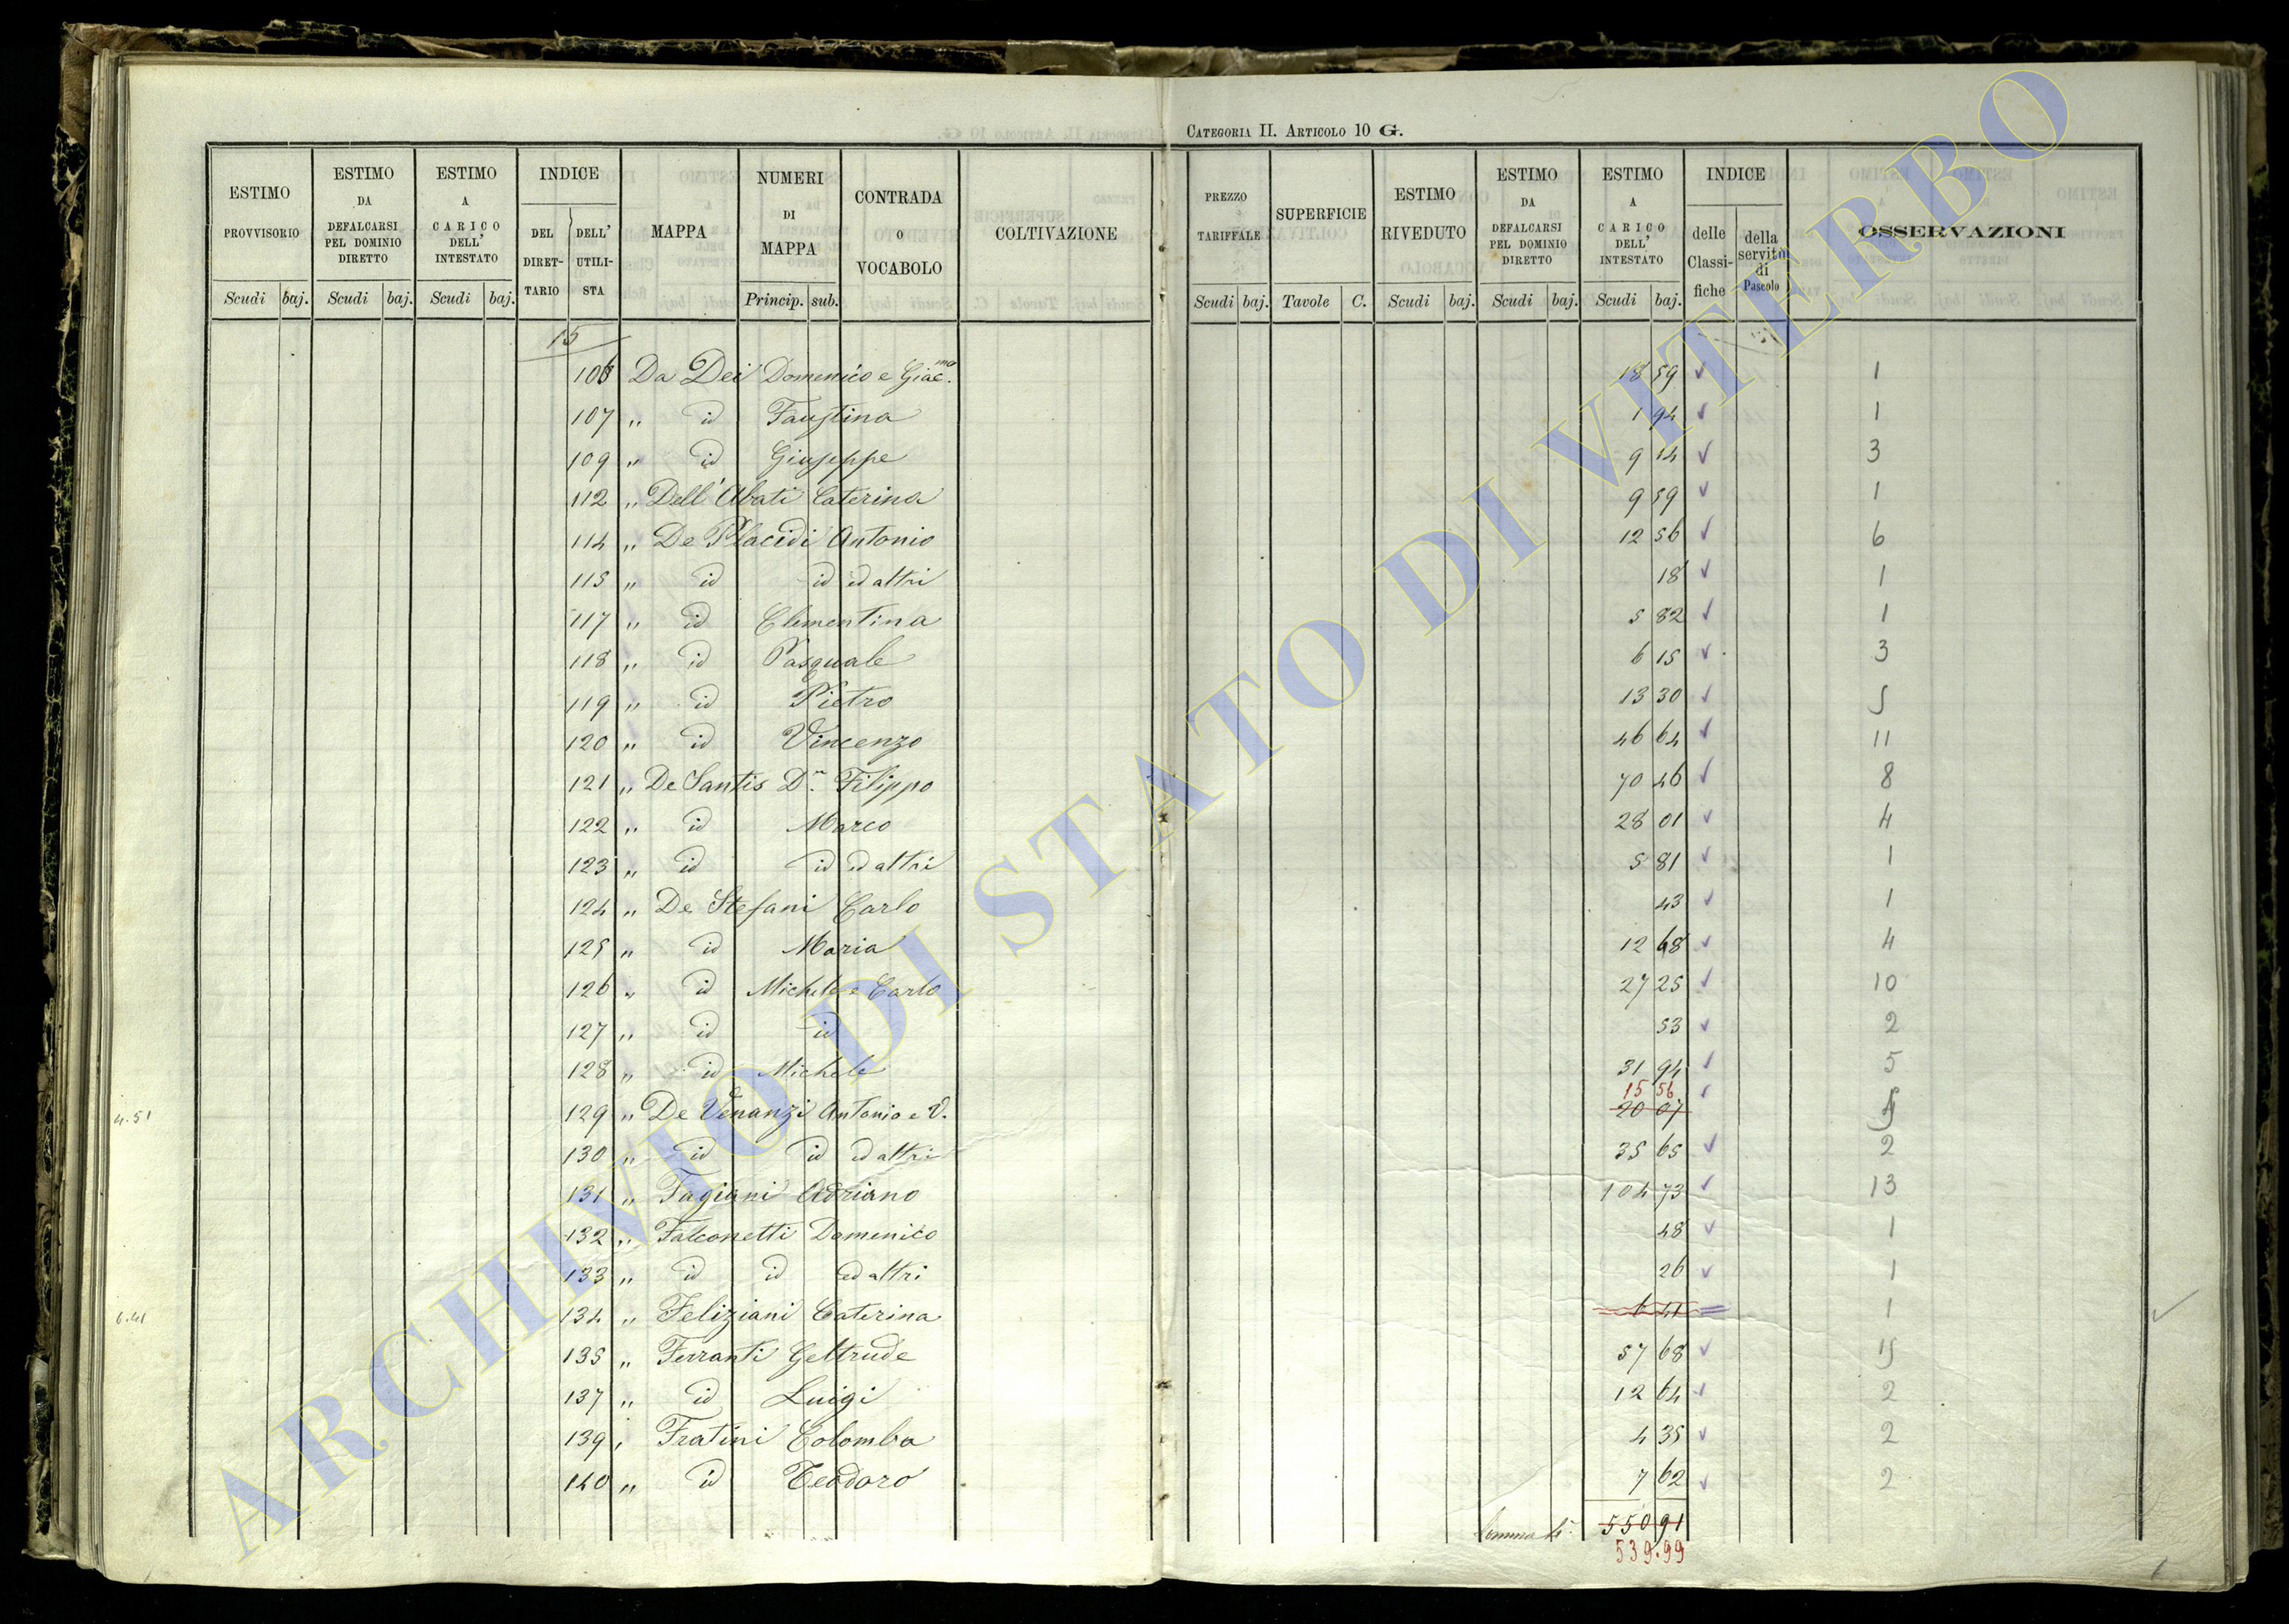 CATEGORIA II. ARTICOLO 10 G.
ESTIMO PROVVISORIO Scudi baj.
ESTIMO DA DEFALCARSI PEL DOMINIO DIRETTO Scudi baj.
ESTIMO A CARICO DELL' INTESTATO Scudi baj.
INDICE DEL DIRET- TARIO DELL' UTILI- STA
MAPPA
NUMERI DI MAPPA Princip. sub.
CONTRADA O VOCABOLO
COLTIVAZIONE
PREZZO TARIFFALE Scudi baj.
SUPERFICIE Tavole C.
ESTIMO RIVEDUTO Scudi baj.
ESTIMO DA DEFALCARSI PEL DOMINIO DIRETTO Scudi baj.
ESTIMO A CARICO DELL' INTESTATO Scudi baj.
INDICE delle Classi- fiche della servitù di Pascolo
OSSERVAZIONI
15
106 Da Dei Domenico e Giac.mo 18 59 1
107 " id Faustina 1 94 1
109 " id Giuseppe 9 14 3
112 " Dell'Abati Caterina 9 59 1
114 " De Placidi Antonio 12 56 6
115 " id id ed altri 18 1
117 " id Clementina 5 82 1
118 " id Pasquale 6 15 3
119 " id Pietro 13 30 5
120 " id Vincenzo 46 64 11
121 " De Santis Dn. Filippo 70 46 8
122 " id Marco 28 01 4
123 " id id ed altri 5 81 1
124 " De Stefani Carlo 43 1
125 " id Maria 12 68 4
126 " id Michele e Carlo 27 25 10
127 " id id 53 2
128 " id Michele 31 94 5
15 56
4.51 129 " De Venanzi Antonio e V. 20 07
130 " id id ed altri 35 65 2
131 " Fagiani Adriano 104 73 13
132 " Falconetti Domenico 48 1
133 " id id ed altri 26 1
6.41 134 " Feliziani Caterina 6 41 1
135 " Ferranti Geltrude 57 68 15
137 " id Luigi 12 64 2
139 " Fratini Colomba 4 35 2
140 " id Teodoro 7 62 2
550 91
539.99
ARCHIVIO DI STATO DI VITERBO